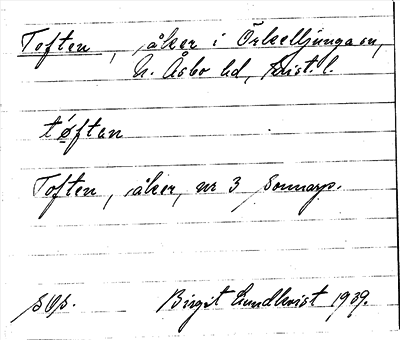 Toften, åker i Örkelljunga sn,
N. Åsbo hd, Krist. l.
tøftan
Toften, åker, nr 3 Sonnarp.
sOp. Birgit Lundkvist 1939.